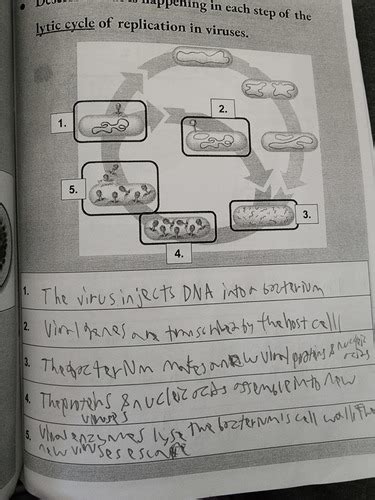 is happening in each step of the
lytic cycle of replication in viruses.
2.
1.
5.
3.
4.
1. The virus injects DNA into a bacterium
2 Viral genes are transcribed by the host cell
3 The bacterium makes new viral proteins & nucleic
acids
4 The proteins & nucleic acids assemble into new
viruses
5 Viral enzymes lyse the bacterium's cell wall, the
new viruses escape